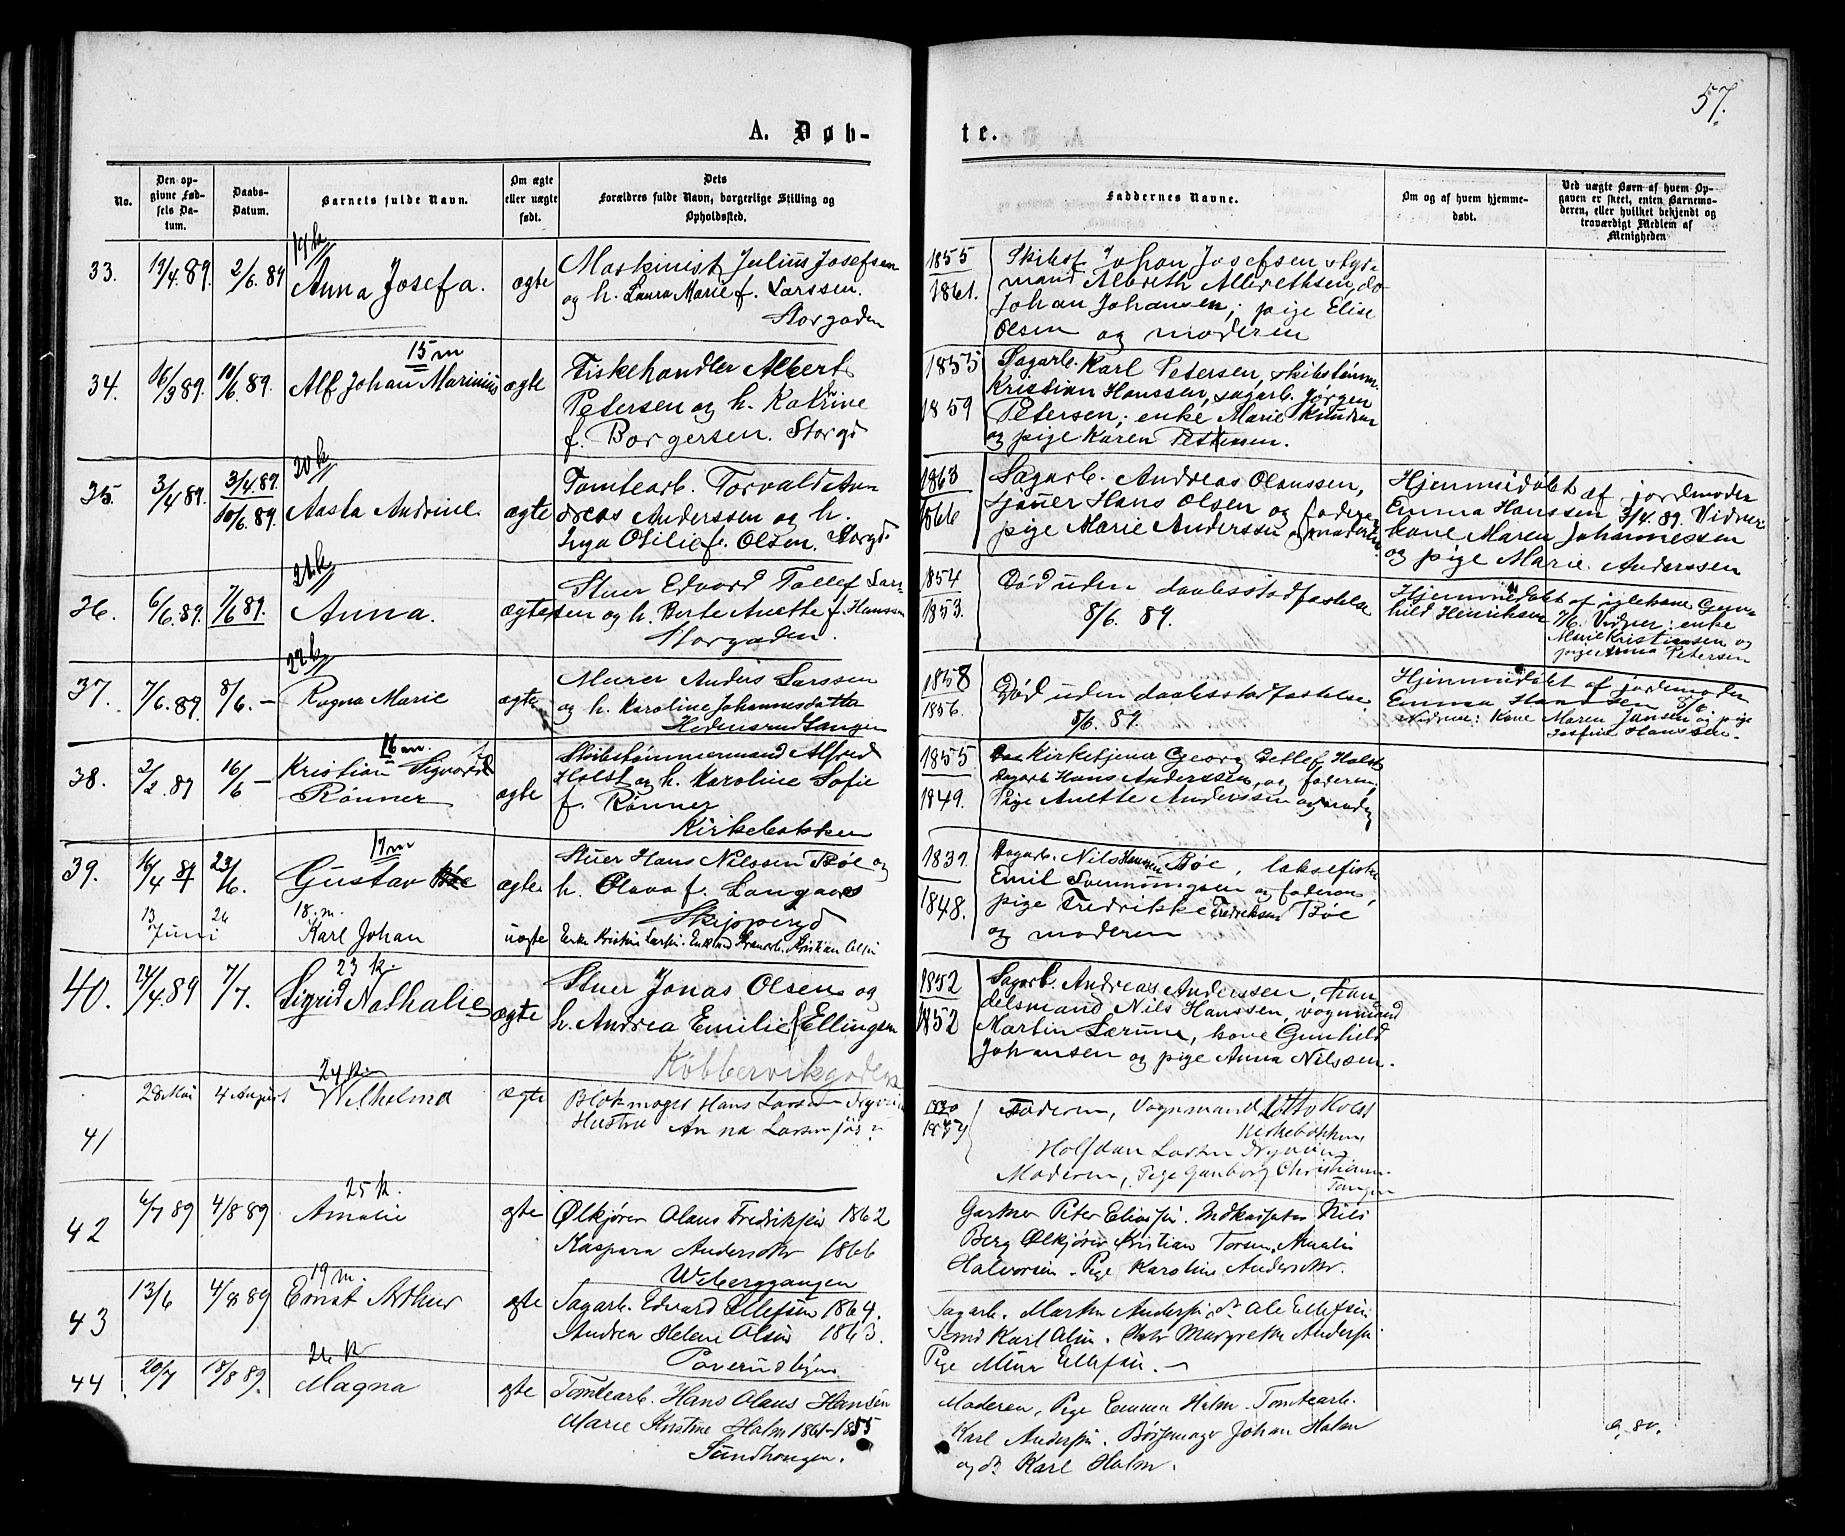 57.
A. Døb-
te.
No.
Den op-
givne Fød-
sels Da-
tum.
Daabs-
Datum.
Barnets fulde Navn.
Om ægte
eller uægte
født.
Dets
Forældres fulde Navn, borgerlige Stilling og
Opholdssted.
Faddernes Navne.
Om og af hvem hjemme-
døbt.
Ved uægte Børn af hvem Op-
gaven er skeet, enten Barnemo-
deren, eller hvilket bekjendt og
troværdigt Medlem af
Menigheden
19 k
33. 19/4.89. 2/6.89 Anna Josefa. ægte
Maskinist Julius Josefsen
og h. Laura Marie f. Larssen.
Storgaden
1855
1861.
Skibsf. Johan Josefsen styr-
mand Albreth Albrethsen, do
Johan Johansen; pige Elise
Olsen og moderen
15 m
34. 16/3 89. 10/6.89. Alf Johan Marinius ægte
Fiskehandler Albert
Petersen og h. Katrine
f. Borgersen. Storgd
1855
1859
Sagarb. Karl Petersen, skibstømm.
Kristian Hanssen, sagarb. Jørgen
Petersen; enke Marie Knudsen
og pige Karen Pettersen.
20 k
35. 3/4 89. 3/4.89. 10/6.89. Aasta Andrine ægte
Tomtearb. Torvald An-
dreas Anderssen og h.
Inga Otilie f. Olsen. Storgd
1863
1866
Sagarb. Andreas Olaussen,
Hans Olsen og faderen
pige Marie Anderssen og moderen
Hjemmedøbt af jordmoder
Emma Hanssen 3/4.89. Vidner
kone Maren Johannessen
og pige Marie Anderssen
21 k
36. 6/6.89. 7/6 89. Anna. ægte
Stuer Edvard Tollef Lars-
sen og h. Berte Anette f. Hanssen
Storgaden.
1854
1853.
Død uden daabsstadfæstelse
8/6. 89.
Hjemmedøbt af iglekone Gun-
hild Henriksen 7/6. Vidner: enke
Marie Kristiansen og
pige Anna Petersen
22 k
37. 7/6.89. 8/6. — Ragna Marie ægte
Murer Anders Larssen
og h. Karoline Johannesdatter
Hedensrud Tangen
1858
1856.
Død uden daabsstadfæstelse
8/6. 89.
Hjemmedøbt af jordmoder
Emma Hanssen 8/6
Vidner: kone Maren Jansen og pige
Josefine Hanssen.
16 m.
38. 2/2.89 16/6 — Kristian Sigvard
Rønner ægte
Skibstømmermand Alfred
Holst og h. Karoline Sofie
f. Rønner
Kirkebakken
1855
1849.
Kirketjener Georg Detlef Holst
Sagarb. Hans Anderssen, og faderen,
Pige Anette Anderssen og mod
17 m
39. 16/4 89 23/6. Gustav ægte
Stuer Hans Nilssen Bøe og
h. Olava f. Langaard
Skippergd
1837
1848.
Sagarb. Nils Hanssen Bøe, laksefisker
Emil Svenningsen og faderen,
pige Fredrikke Fredriksen Bøe
og moderen
13 Juni 24 18. m.
Karl Johan uægte
40. 24/4.89 7/7. 23 k.
Sigrid Nathalie ægte
Stuer Jonas Olsen og
h. Andrea Emilie f. Ellingsen
Kobbervikgaden
1852
1852
Sagarb. Andreas Anderssen, han-
delsmand Nils Hanssen, vognmand
Martin Sørum, kone Gunhild
Johansen og pige Anna Nilssen.
24 k.
41 28 Mai 4 August Wilhelmа ægte
Blokmager Hans Larsen
Hustru Anna Larsen
Faderen, Vognmand Otto Holst
Kirkebakken
Halfdan Larsen
Moderen, Pige Gunborg Christians
Tangen
25 k.
42 6/7 89 4/8 89 Amalie ægte
Ølkjører Olaus Fredriksen 1862
Kaspara Andersdtr 1866
Weberggangen
Gartner Peter Eliasen. Nils
Berg Ølkjører Kristian Torsen. Amalie
Halvorsen. Pige Karoline Andersdtr.
19 m.
43 13/6 4/8 89 Ernst Arthur ægte
Sagarb. Edvard Ellefsen 1864.
Andrea Helene Olsen 1863.
Paverudbyen
Sagarb. Martin Andersen, do Ole Ellefsen
Karl Olsen. Margrethe Andersen
Pige Mina Ellefsen. —
26 k
44. 20/7 18/8 89. Magna ægte
Tomtearb. Hans Olaus Hansen
Marie Kristine Holm 1861-1855
Sandhougen.
Moderen, Pige Emma Holm. Tomtearb.
Karl Andersen. Børsemager Johan Holm
og do Karl Holm.
0, 80.